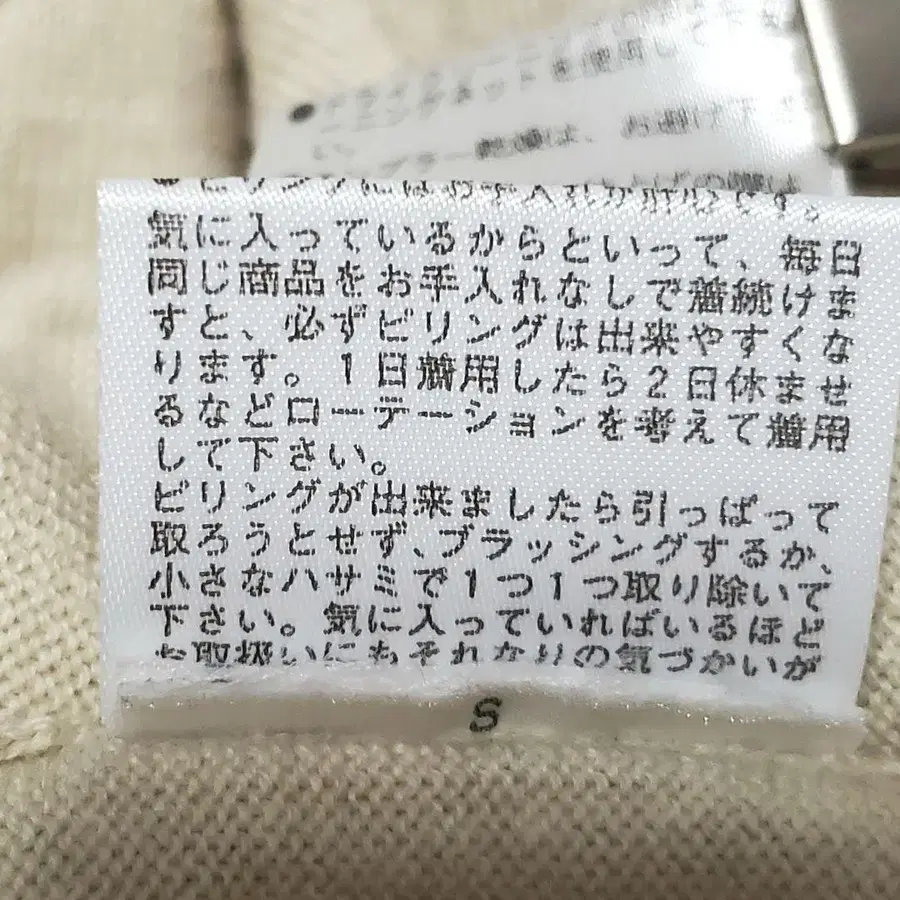 ニングネットを使用して下さ
い。
ブラー乾燥は、お避け下さ
●ピリングにはお手入れが肝心です。
気に入っているからといって、毎日
同じ商品をお手入れなしで着続けま
すと、必ずピリングは出来やすくな
ります。1日着用したら2日休ませ
るなどローテーションを考えて着用
して下さい。
ピリングが出来ましたら引っぱって
取ろうとせず、ブラッシングするか、
小さなハサミで1つ1つ取り除いて
下さい。気に入っていればいるほど
お取扱いにもそれなりの気づかいが
S